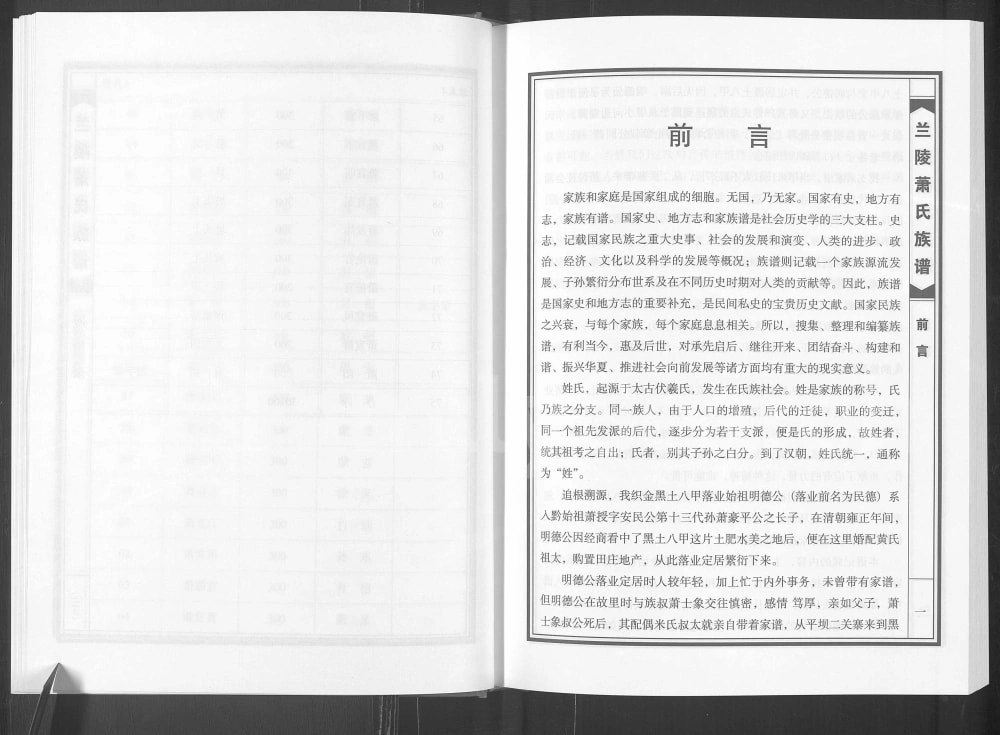 前 言
家族和家庭是国家组成的细胞。无国，乃无家。国家有史，地方有
志，家族有谱。国家史、地方志和家族谱是社会历史学的三大支柱。史
志，记载国家民族之重大史事、社会的发展和演变、人类的进步、政
治、经济、文化以及科学的发展等概况；族谱则记载一个家族源流发
展、子孙繁衍分布世系及在不同历史时期对人类的贡献等。因此，族谱
是国家史和地方志的重要补充，是民间私史的宝贵历史文献。国家民族
之兴衰，与每个家族，每个家庭息息相关。所以，搜集、整理和编纂族
谱，有利当今，惠及后世，对承先启后、继往开来、团结奋斗、构建和
谐、振兴华夏、推进社会向前发展等诸方面均有重大的现实意义。
姓氏，起源于太古伏羲氏，发生在氏族社会。姓是家族的称号，氏
乃族之分支。同一族人，由于人口的增殖，后代的迁徙，职业的变迁，
同一个祖先发派的后代，逐步分为若干支派，便是氏的形成，故姓者，
统其祖考之自出；氏者，别其子孙之白分。到了汉朝，姓氏统一，通称
为“姓”。
追根溯源，我织金黑土八甲落业始祖明德公（落业前名为民德）系
入黔始祖萧授字安民公第十三代孙萧豪平公之长子，在清朝雍正年间，
明德公因经商看中了黑土八甲这片土肥水美之地后，便在这里婚配黄氏
祖太，购置田庄地产，从此落业定居繁衍下来。
明德公落业定居时人较年轻，加上忙于内外事务，未曾带有家谱，
但明德公在故里时与族叔萧士象交往慎密，感情 笃厚，亲如父子，萧
士象叔公死后，其配偶米氏叔太就亲自带着家谱，从平坝二关寨来到黑
兰陵萧氏族谱
前言
一